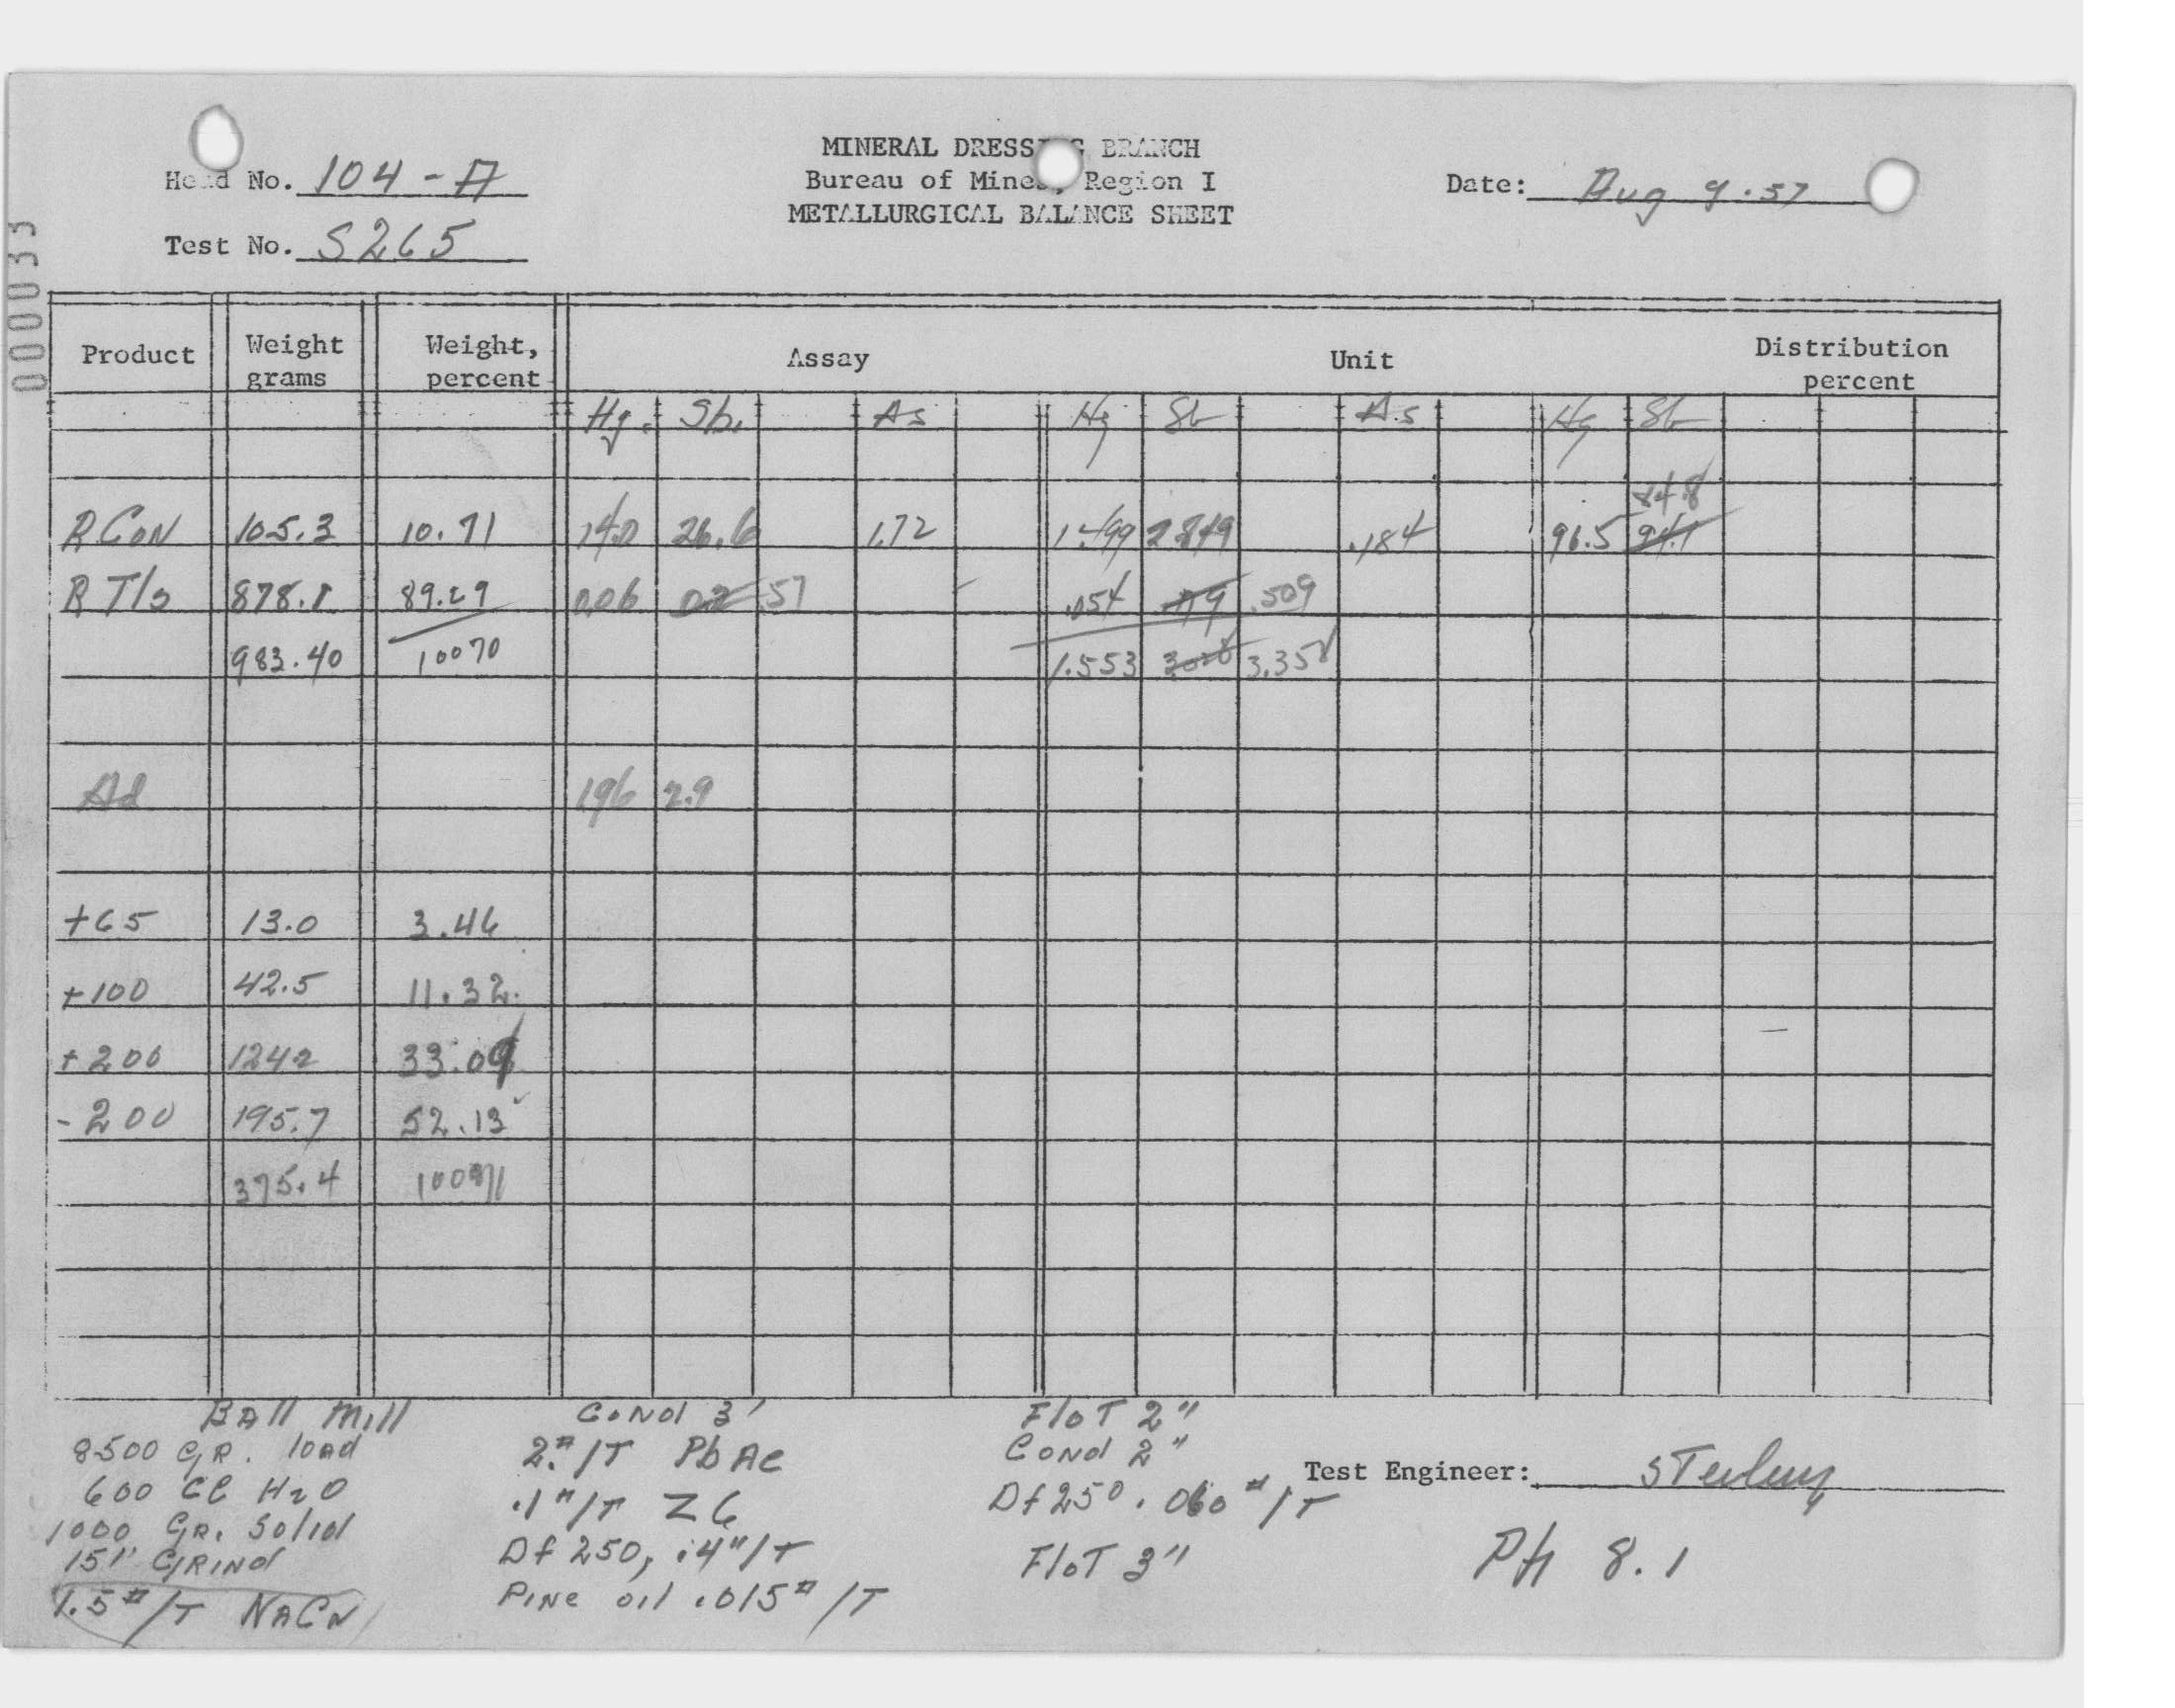 MINERAL DRESSING BRANCH
Head No. 104-A
Bureau of Mines, Region I
Date: Aug 9-57
METALLURGICAL BALANCE SHEET
Test No. S265
000033
Product Weight grams Weight, percent Assay Unit Distribution percent
Hg. Sb. As Hg Sb As Hg Sb
84.8
R Con 105.3 10.71 14.0 26.6 1.72 1.499 2.849 .184 96.5 94.1
R Tls 878.1 89.29 0.06 0.2 .57 .054 .179 .509
983.40 100% 1.553 3.028 3.358
Ad 1.96 2.9
+65 13.0 3.46
+100 42.5 11.32
+200 124.2 33.09
-200 195.7 52.13
375.4 100%
Ball Mill Cond 3' Flot 2"
8500 GR. load 2.#/T PbAc Cond 2"
600 CC H2O .1#/T Z6 Df 250 .060#/T
Test Engineer: Sterling
1000 GR. Solid Df 250, .4#/T Flot 3"
15' GRind Pine oil .015#/T PH 8.1
1.5#/T NaCN